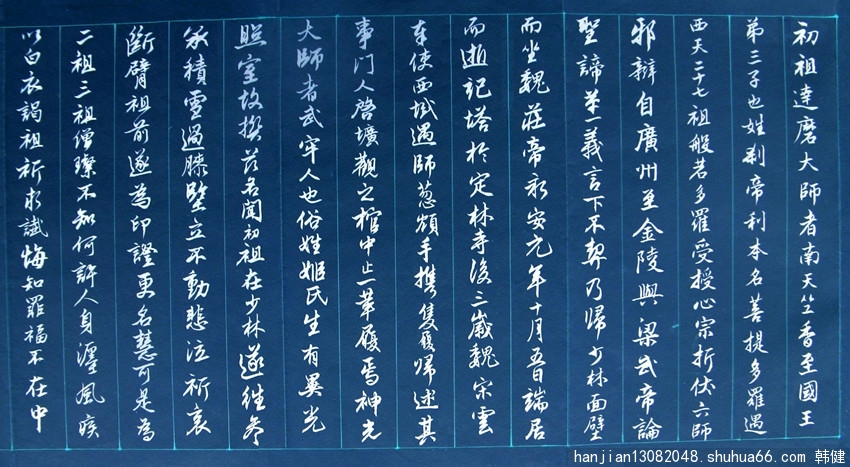 初祖達磨大師者南天竺香至國王
弟三子也姓刹帝利本名菩提多羅遇
西天二十七祖般若多羅受授心宗折伏六師
邪辯自廣州至金陵與梁武帝論
聖諦苐一義言下不契乃歸少林面壁
而坐魏莊帝永安元年十月五日端居
而逝記塔於定林寺後三歲魏宋雲
奉使西域遇師葱嶺手携隻履歸述其
事门人啓壙觀之棺中止一革履焉神光
大師者武牢人也俗姓姬氏生有異光
照室故撰茲名聞初祖在少林遂往參
承積雪過膝堅立不動悲泣祈哀
斷臂祖前遂為印證更名慧可是為
二祖三祖僧璨不知何許人身瀍風疾
以白衣謁祖祈求讖悔知罪福不在中
hanjian13082048.shuhua66.com 韩健